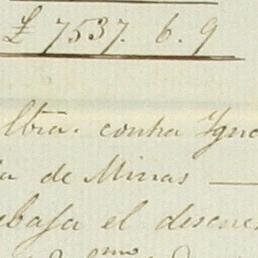 £ 7537. 6. 9
ltra. contra Igna
a de Minas
ebaja el descue